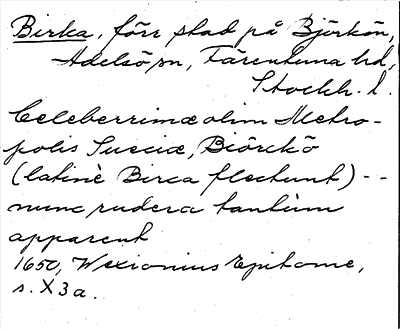 Birka, förr stad på Björkön,
Adelsö sn, Färentuna hd,
Stockh. l.
Celeberrimæ olim Metro-
polis Sueciæ, Biörckö
(latinè Birca flectunt) --
nunc rudera tantùm
apparent
1650, Wexionius Epitome,
s. X3a.